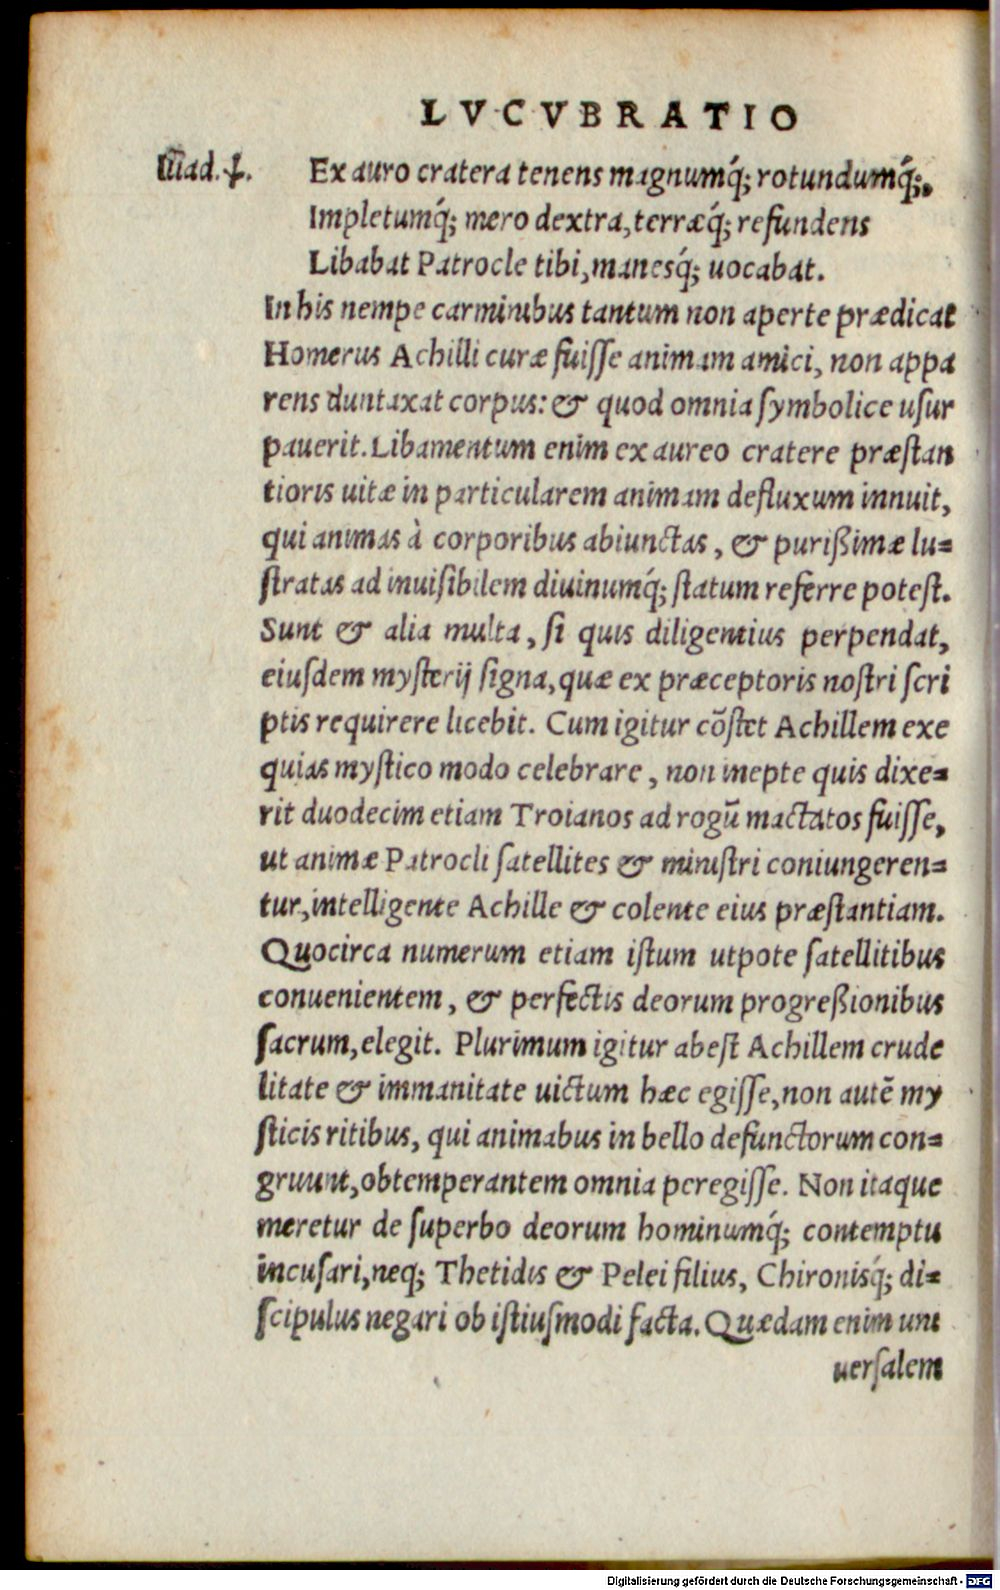 LVCVBRATIO
Iliad. ψ.
Ex auro cratera tenens magnumq́; rotundumq́;,
Impletumq́; mero dextra, terræq́; refundens
Libabat Patrocle tibi, manesq́; uocabat.
In his nempe carminibus tantum non aperte prædicat
Homerus Achilli curæ fuiſſe animam amici, non appa
rens duntaxat corpus: & quod omnia ſymbolice uſur
pauerit. Libamentum enim ex aureo cratere præſtan
tioris uitæ in particularem animam defluxum innuit,
qui animas à corporibus abiunctas, & purißimæ lu=
ſtratas ad inuiſibilem diuinumq́; ſtatum referre poteſt.
Sunt & alia multa, ſi quis diligentius perpendat,
eiuſdem myſterij ſigna, quæ ex præceptoris noſtri ſcri
ptis requirere licebit. Cum igitur cõſtet Achillem exe
quias myſtico modo celebrare, non inepte quis dixe=
rit duodecim etiam Troianos ad rogũ mactatos fuiſſe,
ut animæ Patrocli ſatellites & miniſtri coniungeren=
tur, intelligente Achille & colente eius præſtantiam.
Quocirca numerum etiam iſtum utpote ſatellitibus
conuenientem, & perfectis deorum progreßionibus
ſacrum, elegit. Plurimum igitur abeſt Achillem crude
litate & immanitate uictum hæc egiſſe, non autẽ my
ſticis ritibus, qui animabus in bello defunctorum con=
gruunt, obtemperantem omnia peregiſſe. Non itaque
meretur de ſuperbo deorum hominumq́; contemptu
incuſari, neq; Thetidis & Pelei filius, Chironisq́; di=
ſcipulus negari ob iſtiuſmodi facta. Quædam enim uni
uerſalem
Digitalisierung gefördert durch die Deutsche Forschungsgemeinschaft - DFG